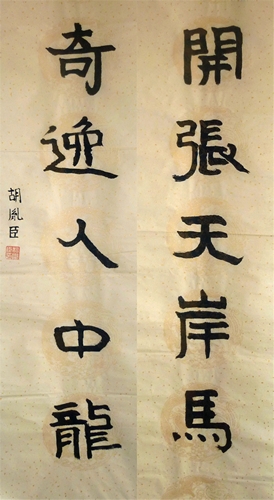 開張天岸馬
奇逸人中龍
胡胤臣